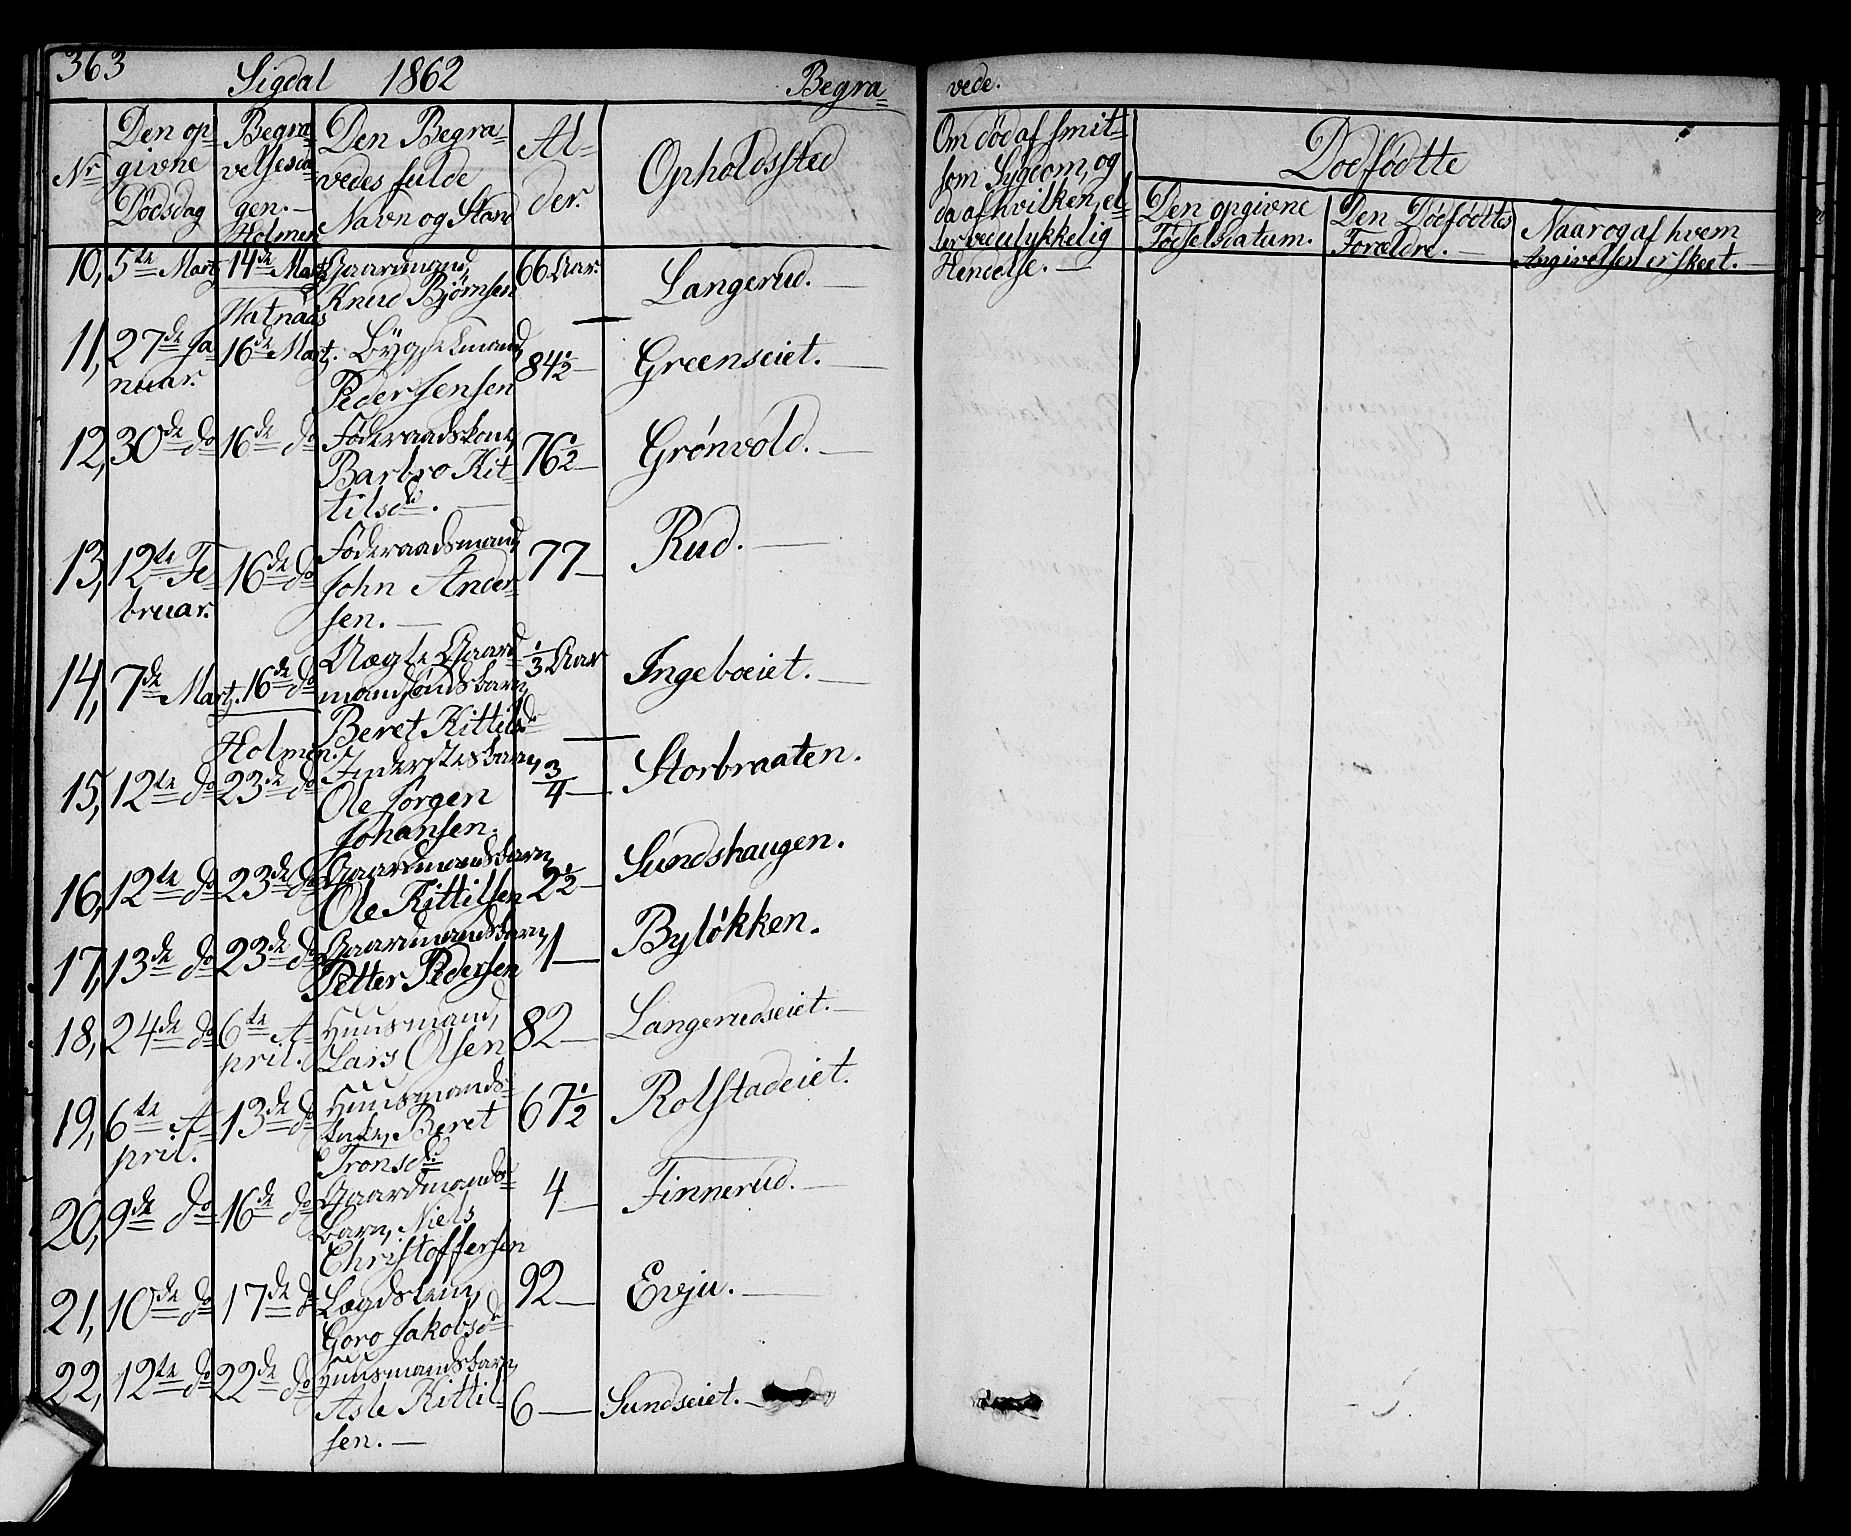 363 Sigdal 1862 Begra= vede.
Nr. Den op= givne Dödsdag Begra= velsesda= gen. Den Begra= vedes fulde Navn og Stand Al= der. Opholdssted Om död af smit= som Sygdom, og da af hvilken, el= ler ved ulykkelig Hendelse. — Dodfödtte
Den opgivne Födselsdatum. Den Dödfödtes Forældre. — Naar og af hvem Angivelsen er skeet. —
Holmen
10, 5te Martz 14de Martz Gaardmand, Knud Björnsen 66 Aar. Langerud. —
Vatnaas
11, 27de Ja= nuar. 16de Martz. Pedersensen 84½ — Greenseiet. —
12, 30de do 16de do Föderaadskone, Barbro Kit= tilsdr. — 76½ — Grönvold. —
13, 12te Fe= bruar. 16de do Föderaadsmand, John Ander= sen. — 77 — Rud. —
14, 7de Martz. 16de do Uægte Gaard= mandsöndsbarn, Beret Kittilsdr 1/3 Aar Ingeboeiet. —
Holmen.
15, 12te do 23de do Inderstesbarn, Ole Jorgen Johansen. 3/4 — Storbraaten.
16, 12te do 23de do Gaardmandsbarn, Ole Kittilsen 2½ — Sundshaugen.
17, 13de do 23de do Gaardmandsbarn, Petter Pedersen 1 — Bylökken.
18, 24de do 6te A= pril. Huusmand, Lars Olsen 82 — Langerudseiet. —
19, 6te A= pril. 13de do Huusmands= enke, Beret Tronsdr. 67½ Rolstadeiet.
20, 9de do 16de do Gaardmands= barn, Niels Christoffersen 4 — Finnerud. —
21, 10de do 17de do Lægdslem, Goro Jakobsdr 92 — Evju. —
22, 12te do 22de do Huusmandsbarn, Asle Kittil= sen. — 6 — Sundseiet. —